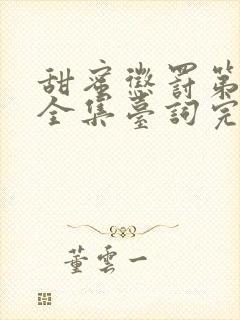 甜蜜懲罰第
全集臺詞完
董雲一